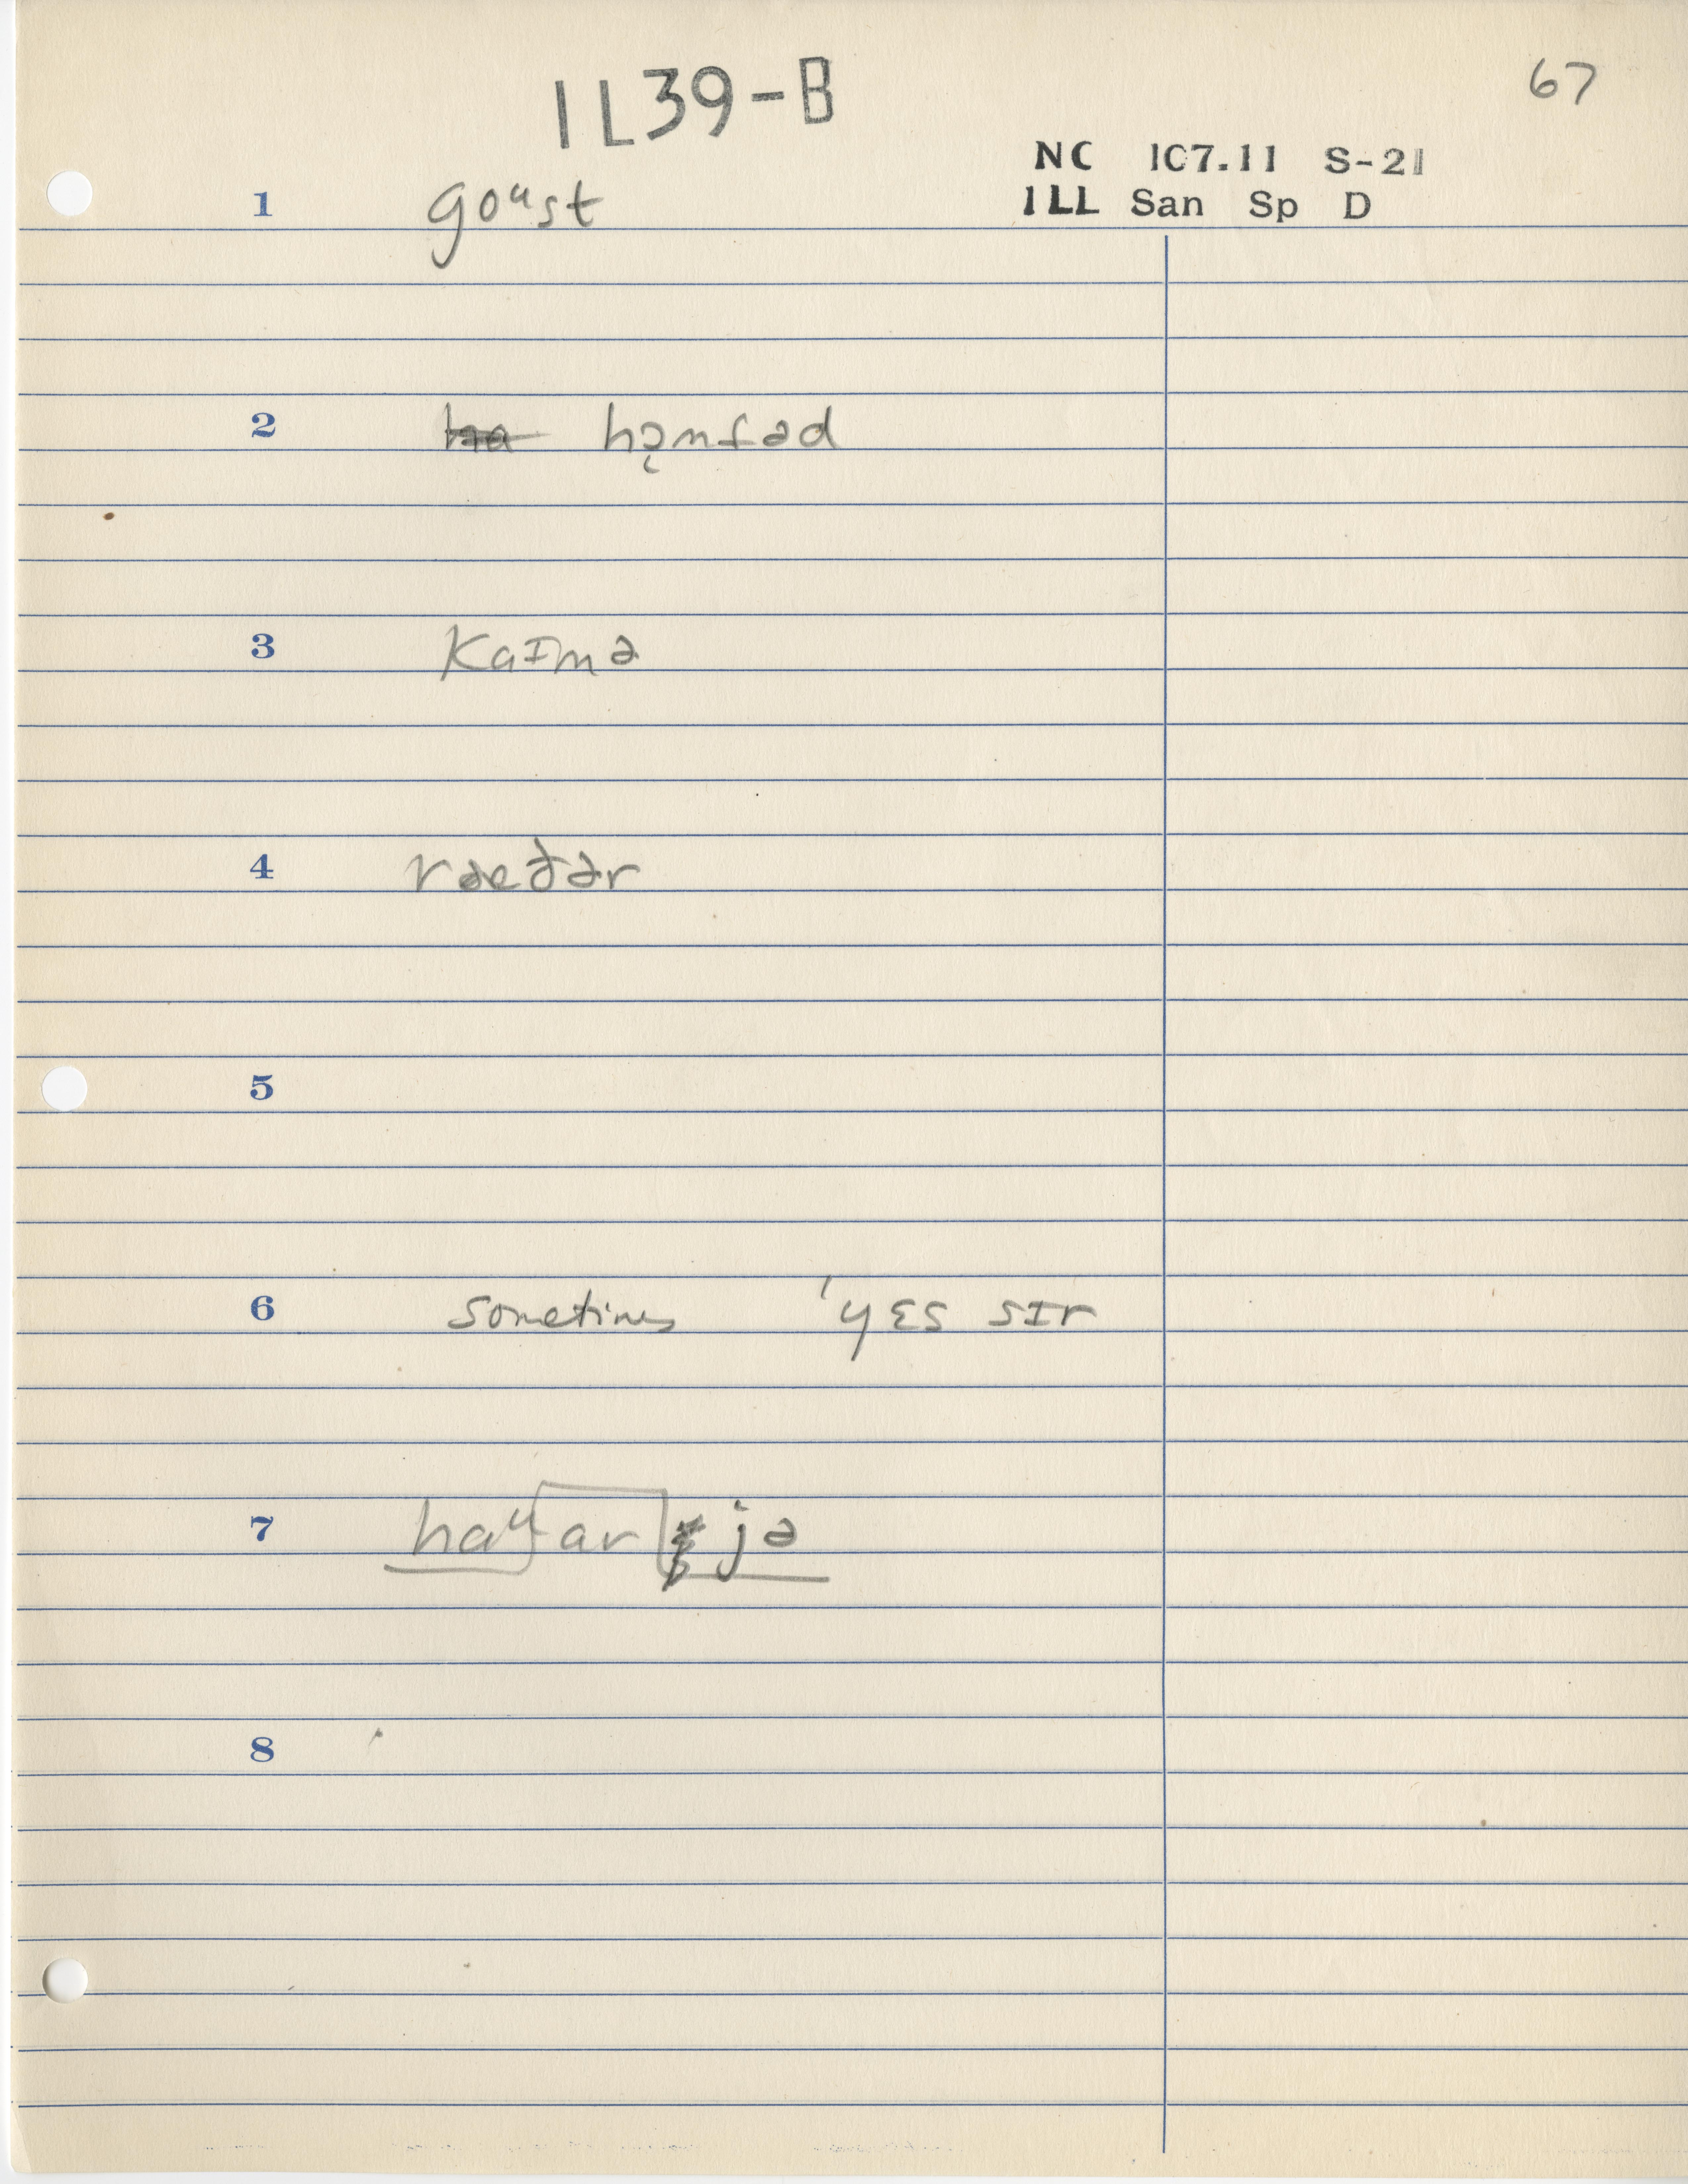 1L39-B
67
NC 107.11 S-21
ILL San Sp D
1 goᵘst
2 hɔ̨ntəd
3 kaɪmə
4 raeðər
5
6 sometimes 'yɛs sɪr
7 haᵘ ar jə
8